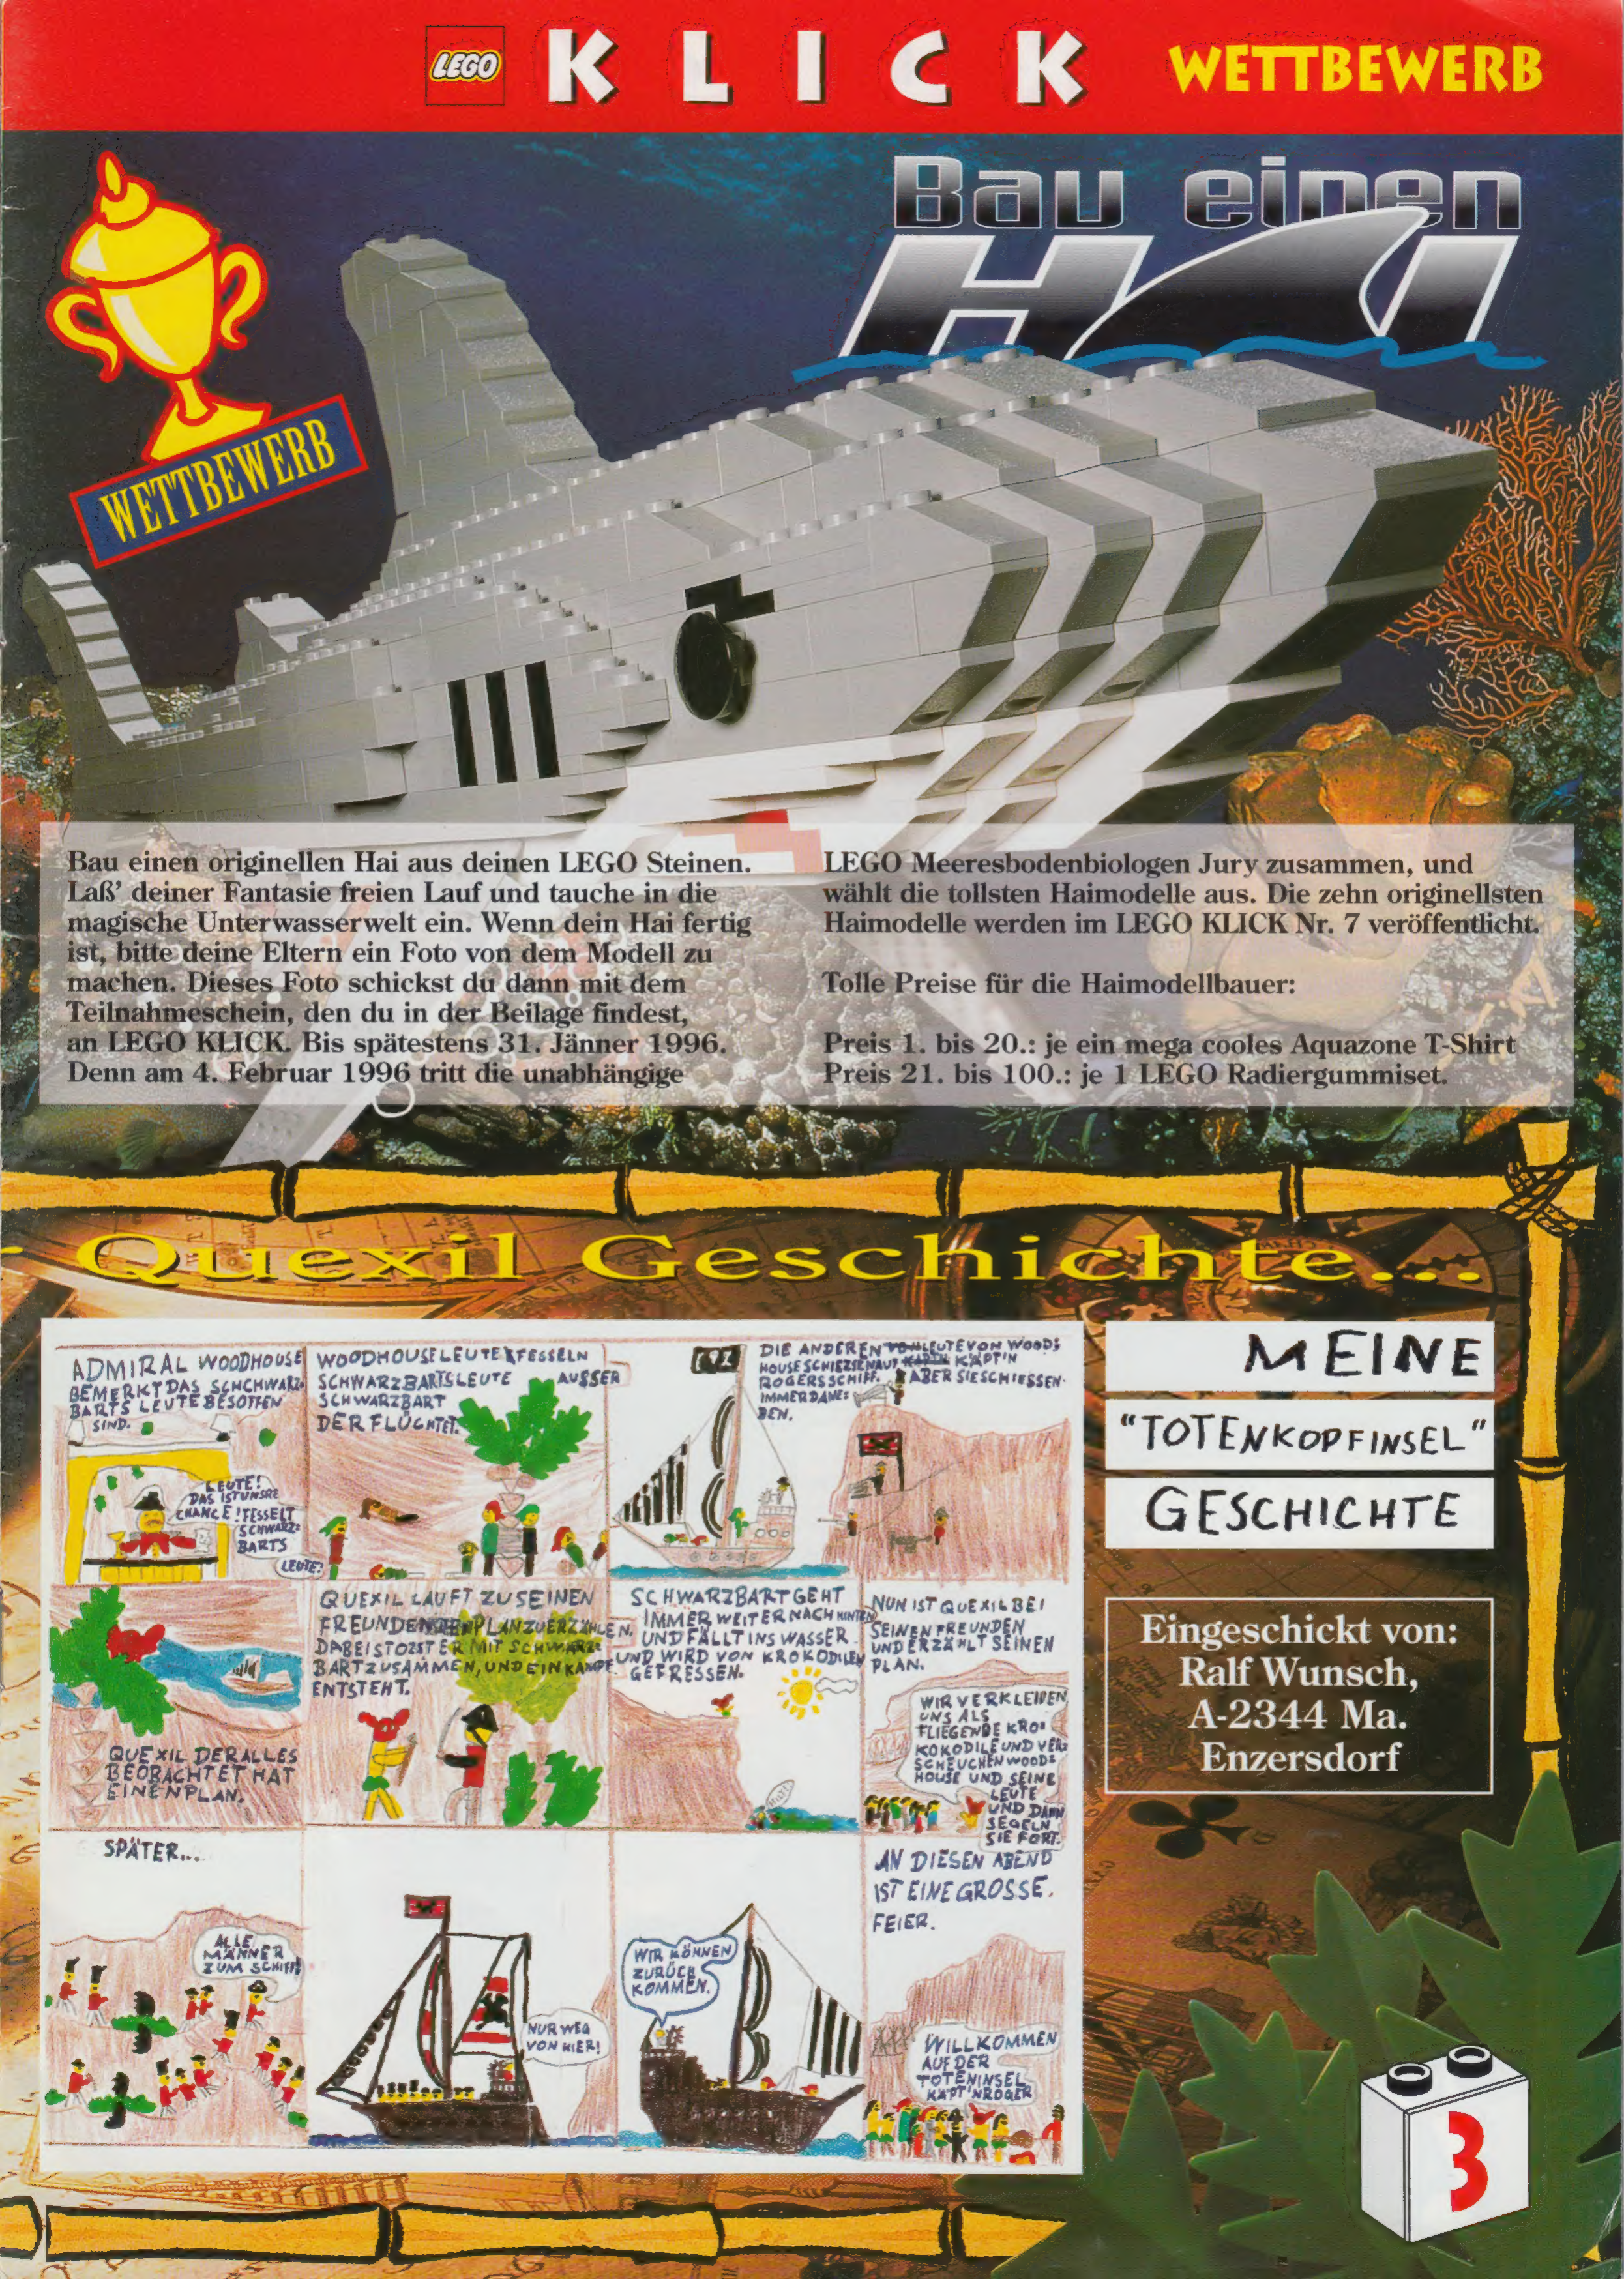 LEGO KLICK WETTBEWERB
Bau einen
HAI
WETTBEWERB
Bau einen originellen Hai aus deinen LEGO Steinen.
Laß' deiner Fantasie freien Lauf und tauche in die
magische Unterwasserwelt ein. Wenn dein Hai fertig
ist, bitte deine Eltern ein Foto von dem Modell zu
machen. Dieses Foto schickst du dann mit dem
Teilnahmeschein, den du in der Beilage findest,
an LEGO KLICK. Bis spätestens 31. Jänner 1996.
Denn am 4. Februar 1996 tritt die unabhängige
LEGO Meeresbodenbiologen Jury zusammen, und
wählt die tollsten Haimodelle aus. Die zehn originellsten
Haimodelle werden im LEGO KLICK Nr. 7 veröffentlicht.
Tolle Preise für die Haimodellbauer:
Preis 1. bis 20.: je ein mega cooles Aquazone T-Shirt
Preis 21. bis 100.: je 1 LEGO Radiergummiset.
Quexil Geschichte...
ADMIRAL WOODHOUSE
BEMERKT DAS SCHCHWARZ-
BARTS LEUTE BESOFFEN
SIND.
LEUTE!
DAS IST UNSRE
CHANCE! FESSELT
SCHWARZ-
BARTS
LEUTE!
WOODHOUSE LEUTE FESSELN
SCHWARZBARTS LEUTE AUSSER
SCHWARZBART
DER FLÜCHTET.
DIE ANDEREN LEUTE VON WOODS
HOUSE SCHIEZSEN AUF KÄPT'N
ROGERS SCHIFF. ABER SIE SCHIESSEN
IMMER DANE=
BEN.
QUEXIL DER ALLES
BEOBACHTET HAT
EINEN PLAN.
QUEXIL LAUFT ZU SEINEN
FREUNDEN DEN PLAN ZU ERZÄHLEN.
DABEI STOZST ER MIT SCHWARZ=
BART ZUSAMMEN, UND EIN KAMPF
ENTSTEHT.
SCHWARZBART GEHT
IMMER WEITER NACH HINTEN
UND FÄLLT INS WASSER
UND WIRD VON KROKODILEN
GEFRESSEN.
NUN IST QUEXIL BEI
SEINEN FREUNDEN
UND ERZÄHLT SEINEN
PLAN.
WIR VERKLEIDEN
UNS ALS
FLIEGENDE KRO=
KOKODILE UND VER=
SCHEUCHEN WOODS=
HOUSE UND SEINE
LEUTE
UND DANN
SEGELN
SIE FORT.
SPÄTER...
ALLE
MÄNNER
ZUM SCHIFF!
NUR WEG
VON HIER!
WIR KÖNNEN
ZURÜCK
KOMMEN.
AN DIESEN ABEND
IST EINE GROSSE.
FEIER.
WILLKOMMEN
AUF DER
TOTENINSEL
KÄPT'N ROGER
MEINE
"TOTENKOPFINSEL"
GESCHICHTE
Eingeschickt von:
Ralf Wunsch,
A-2344 Ma.
Enzersdorf
3